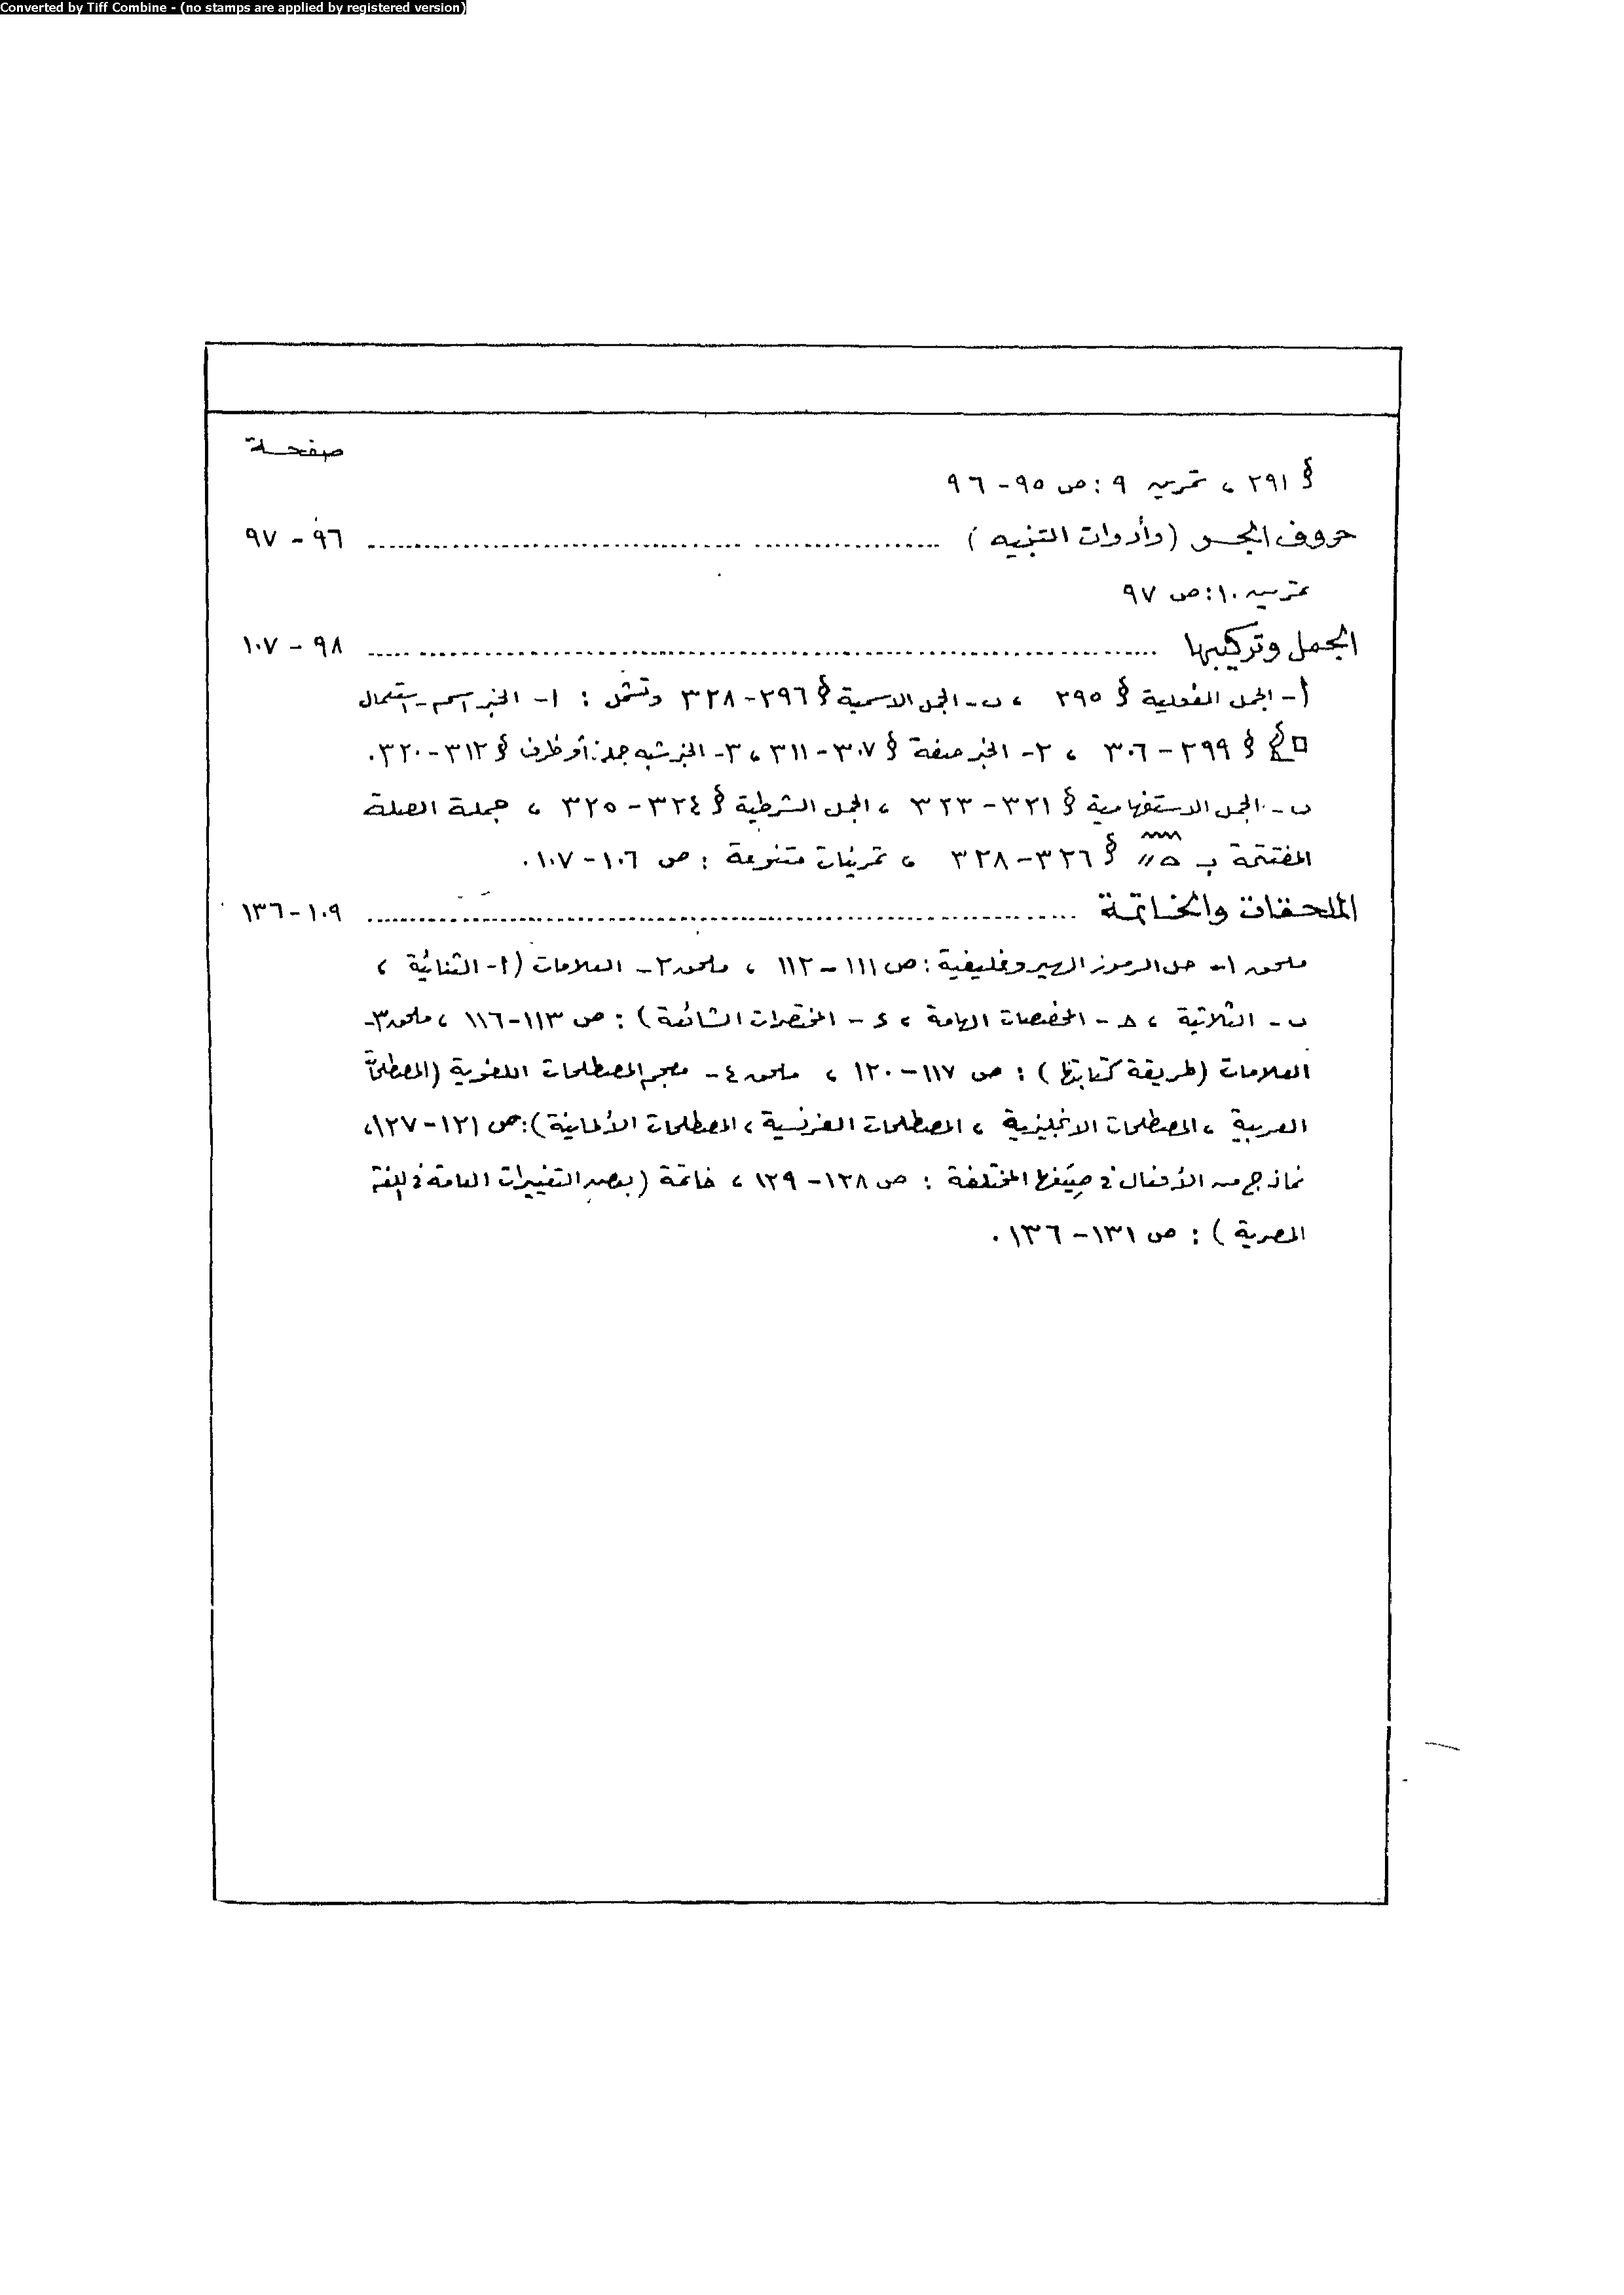 Converted by Tiff Combine - (no stamps are applied by registered version)
صفحة
§ ٢٩١ ، تمرين ٩ : ص ٩٥ - ٩٦
حروف الجـر (وأدوات التنبيه) ........ ٩٦ - ٩٧
تمرين ١٠ : ص ٩٧
الجمل وتركيبها ........ ٩٨ - ١٠٧
أ - الجمل الفعلية § ٢٩٥ ، ب - الجمل الاسمية § ٢٩٦ - ٣٢٨ وتشمل : ١ - الخبر اسم - استعمال
§ ٢٩٩ - ٣٠٦ ، ٢ - الخبر صفة § ٣٠٧ - ٣١١ ، ٣ - الخبر شبه جملة أو ظرف § ٣١٢ - ٣٢٠ .
ب - الجمل الاستفهامية § ٣٢١ - ٣٢٣ ، الجمل الشرطية § ٣٢٤ - ٣٢٥ ، جملة الصلة
المفتتحة بـ § ٣٢٦ - ٣٢٨ ، تمرينات متنوعة : ص ١٠٦ - ١٠٧ .
الملحقات والخـاتمة ........ ١٠٩ - ١٣٦
ملحق ١ - حل الرموز الهيروغليفية : ص ١١١ - ١١٢ ، ملحق ٢ - العلامات (أ - الثنائية ،
ب - الثلاثية ، حـ - المخصصات الهامة ، د - المختصرات الشائعة) : ص ١١٣ - ١١٦ ، ملحق ٣ -
العلامات (طريقة كتابتها) : ص ١١٧ - ١٢٠ ، ملحق ٤ - معجم المصطلحات اللغوية (المصطلحات
العربية ، المصطلحات الانجليزية ، المصطلحات الفرنسية ، المصطلحات الألمانية) : ص ١٢١ - ١٢٧ ،
نماذج من الأفعال في صِيَغها المختلفة : ص ١٢٨ - ١٢٩ ، خاتمة (بعض التغييرات العامة في اللغة
المصرية) : ص ١٣١ - ١٣٦ .